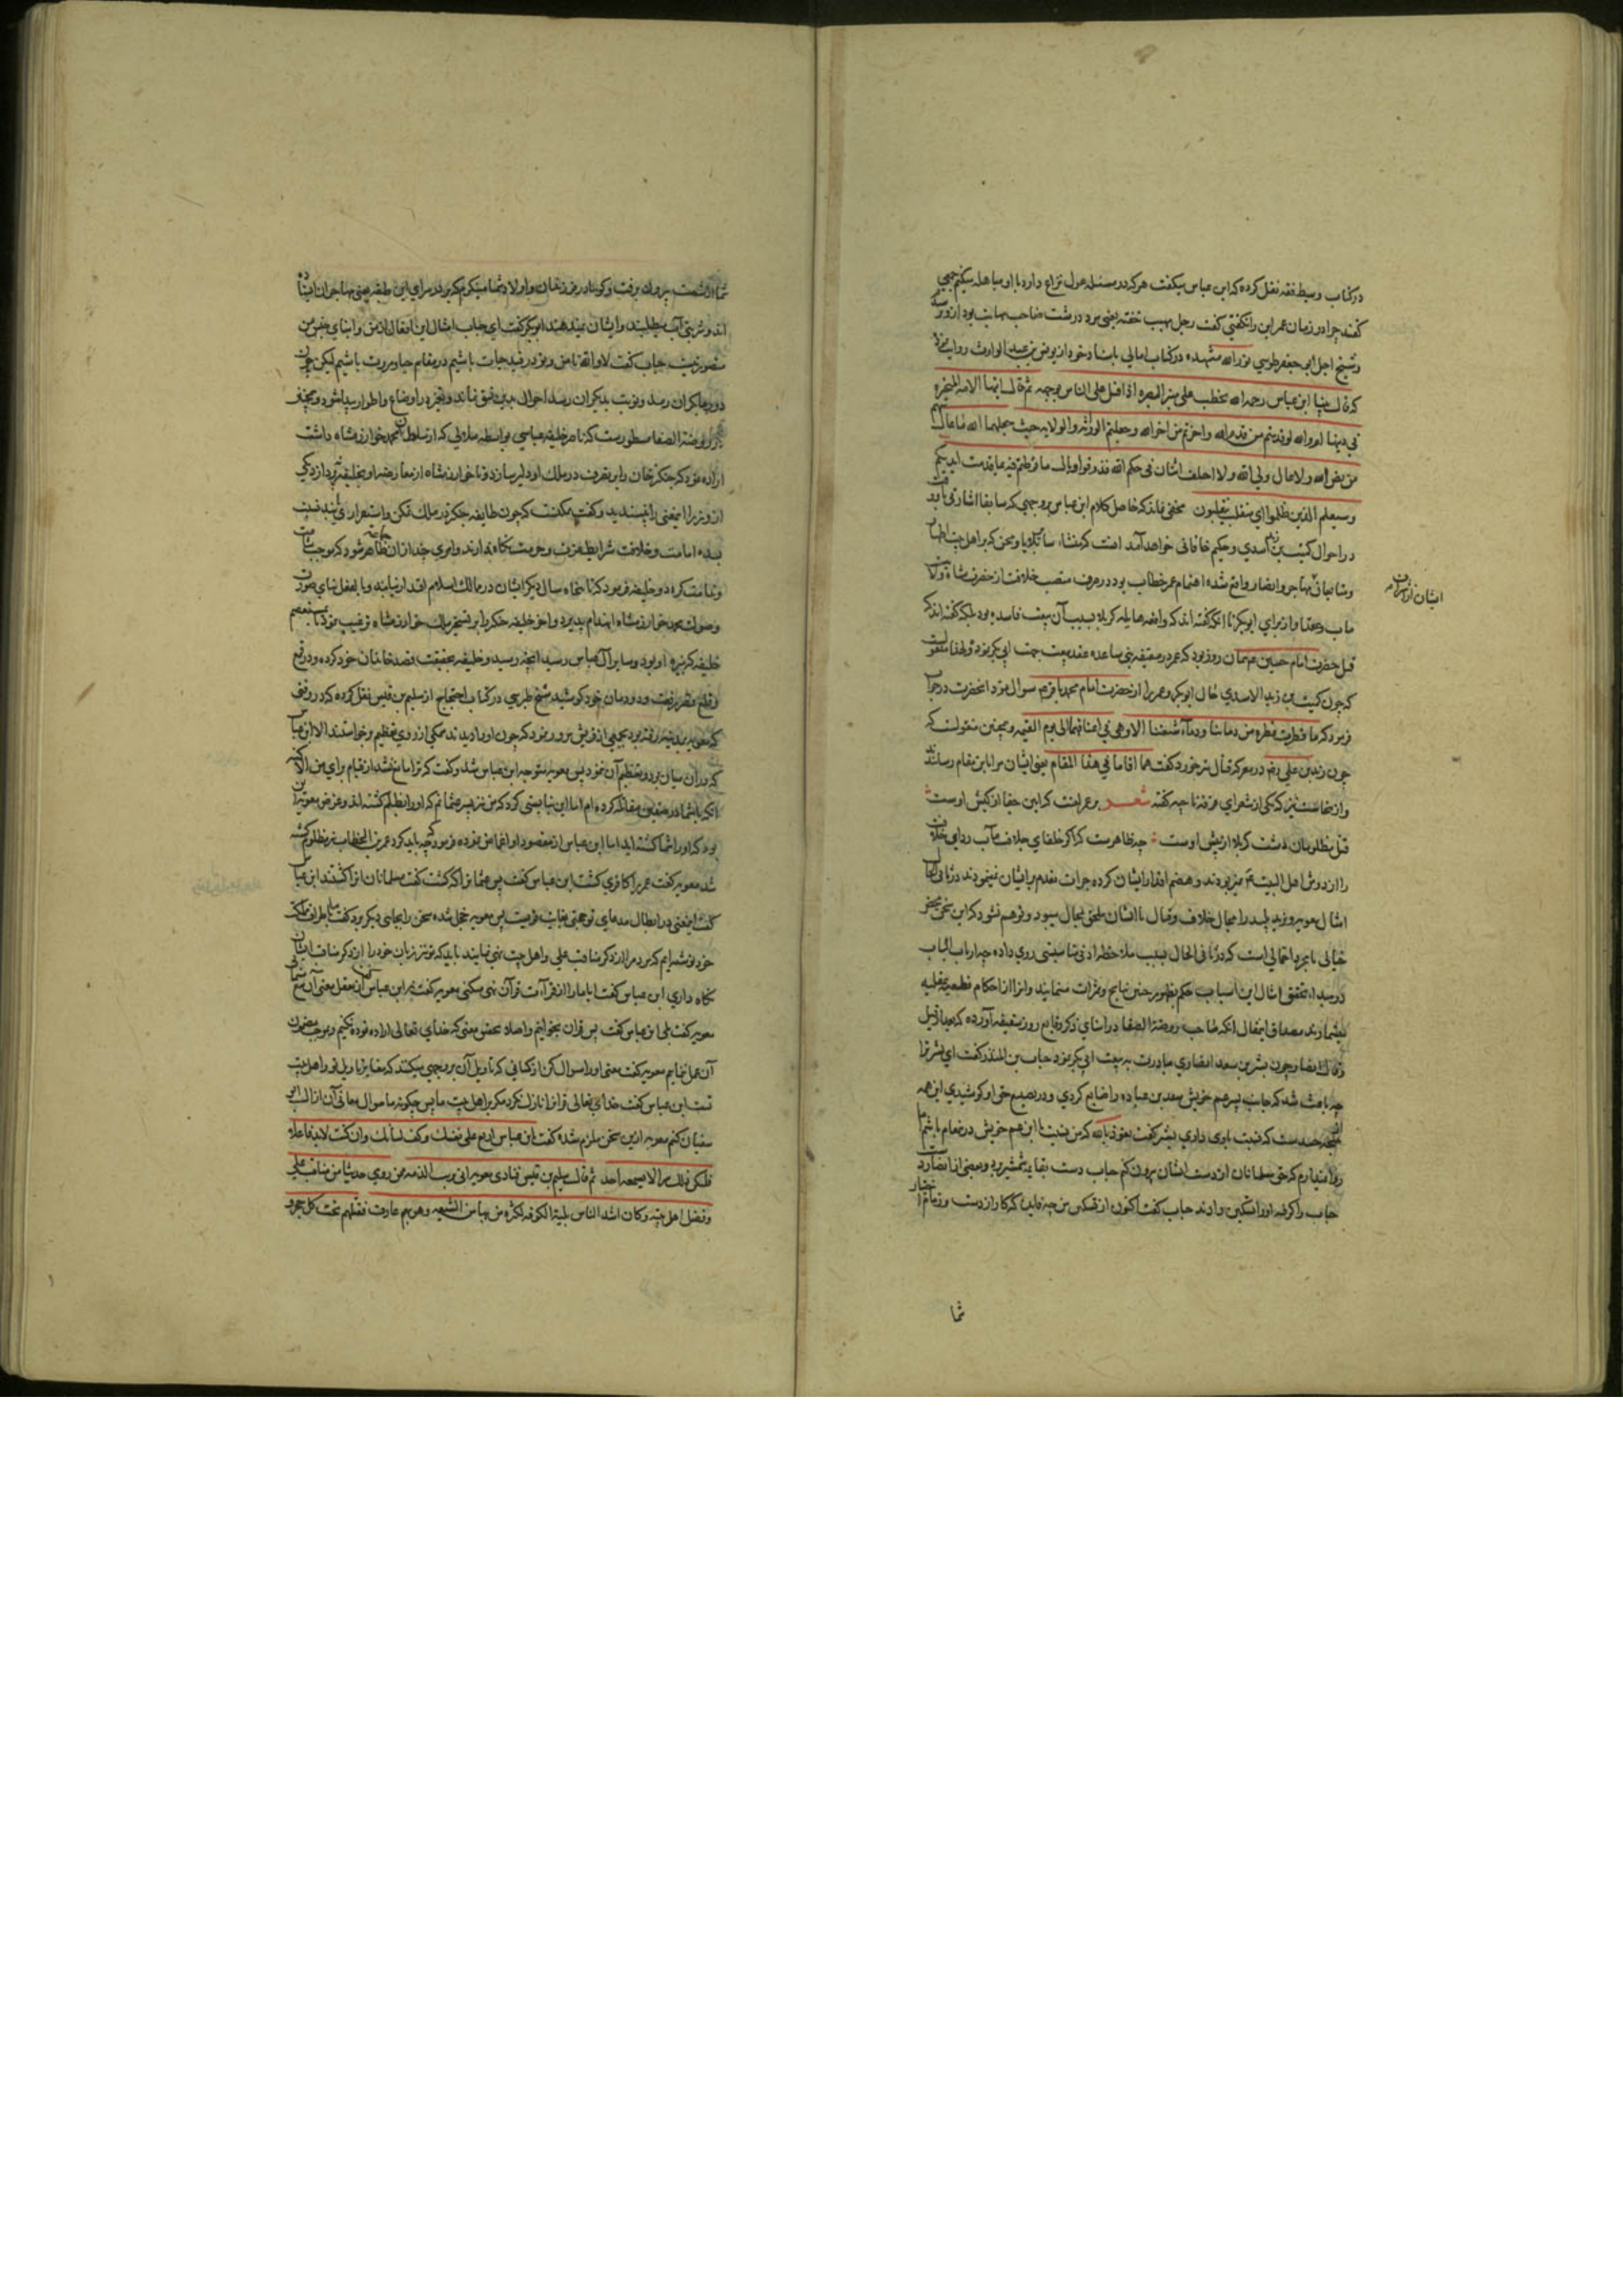 در کتاب وسیط فقه نقل کرده که ابن عباس میکفت هر که در مسئله عول نزاع دارد با او مباهله میکنم جمعی
کفتند چرا در زمان عمر این را نکفتی کفت رجل مهیب یعنی مرد درشت صاحب مهابت بود
وشیخ اجل ابو جعفر طوسی نور الله مشهده در کتاب امالی باسناد خود از یونس بن عبد الوارث روایت
که قال بینا ابن عباس رحمه الله یخطب علی منبر البصره اذ اقبل علی الناس بوجهه ثم قال ایتها الامه المتحیره
فی دینها اما والله لو قدمتم من قدم الله واخرتم من اخر الله وجعلتم الوراثه والولایه حیث جعلهما الله ما عال سهم
من فرایض الله ولا عال ولی الله ولا اختلف اثنان فی حکم الله فذوقوا وبال ما فرطتم فیه بما قدمت ایدیکم
وسیعلم الذین ظلموا ای منقلب ینقلبون مخفی نماند که حاصل کلام ابن عباس بر وجهی که سابقا اشارتی باو رفت
در احوال کمیت بن زید اسدی وحکیم خاقانی خواهد آمد انست که منشاء سایر بلایا ومحن که بر اهل بیت اطهار
وشایعان مهاجر وانصار واقع شده اهتمام عمر خطاب بود در صرف منصب خلافت از حضرت شاه ولایت
ایشان از
ماب وعقد او از برای ابوبکر تا انکه کفته اند که واقعه هایله کربلا بسبب آن بیعت فاسده بود بلکه کفته اند که
قتل حضرت امام حسین ع همان روز بود که عمر در سقیفه بنی ساعده عقد بیعت جهت ابی بکر نمود ولهذا منقولست
که چون کمیت بن زید الاسدی حال ابوبکر وعمر را از حضرت امام محمد باقر ع سوال نمود انحضرت در جواب
فرمود که ما قطرت قطره من دمائنا ودماء شیعتنا الا وهی فی اعناقهما الی یوم القیمه وهمچنین منقولست که
چون زید بن علی رض در معرکه قتال تیر خورد کفت هما اقامانی هذا المقام یعنی ایشان مرا باین مقام رسانیدند
وازینجاست نیز که یکی از شعرای فرقه ناجیه کفته شعر بر عمر لعنت که این جفا از کیش اوست
قتل مظلومان دشت کربلا از پیش اوست چه ظاهرست که اکر خلفای خلاف مآب ردای خلافت
را از دوش اهل البیت ع نمیربودند وهضم اقدار ایشان کرده جرات تقدم بر ایشان نمینمودند
امثال معویه ویزید پلید را مجال خلاف وقتال با ایشان محال میبود وتوهم نشود که این سخن محض
خیالی یا مجرد احتمالی است که در ثانی الحال بسبب ملاحظه ادنی مناسبتی روی داده چه ارباب الباب
در مبداء تحقق امثال این اسباب حکم بظهور چنین نتایج وثمرات مینمایند وانرا از احکام قطعیه عقلیه
میشمارند مصداق اینمقال انکه صاحب روضة الصفا در اثنای ذکر وقایع روز سقیفه آورده که بعد از قیل
وقال انصار چون بشر بن سعد انصاری مبادرت به بیعت ابی بکر نمود حباب بن المنذر کفت ای بشر ترا
چه باعث شد که جانب پسر عم خویش سعد بن عباده را ضایع کردی ودر تضییع حق او کوشیدی این همه
نتیجه حسدست که نسبت باوی داری بشر کفت نعوذ بالله که من نسبت با ابن عم خویش در مقام باشم اما
روا ندارم که حق مسلمانان از دست ایشان بیرون کنم حباب دست بقایمه شمشیر برد وبعضی از انصار دست
حباب را کرفته او را تسکین دادند حباب کفت اکنون از تسکین من چه فایده که کار از دست وزمام اختیار
شما
شما از شست بیرون رفت وکویا در روز فرزندان واولاد شما مینکرم که بر در سرای این طبقه یعنی مهاجران ایستاده
اند وشربتی آب میطلبند وایشان نمیدهند ابوبکر کفت ای حباب امثال این افعال از من وابنای جنس من
متصور نیست حباب کفت لا والله تا من وتو در قید حیات باشیم در مقام حیا ومروت باشیم لیکن چون
دور بدیکران رسد ونوبت بدیکران رسد احوال بدین نسق نماند وتغیر در اوضاع واطوار پیدا شود وهمچنین
در روضة الصفا مسطورست که ناصر خلیفه عباسی بواسطه ملالی که از سلطان محمد خوارزمشاه داشت
اراده نمود که چنکیز خان را بر تصرف در ملک او دلیر سازد وتا خوارزمشاه از معارضه او بخلیفه نپردازد یکی
از وزرا اینمعنی را نپسندید وکفت ممکنست که چون طایفه چنکیز در ملک تمکن واستقرار یابند نسبت
بسده امامت وخلافت شرایط عزت وحرمت نکاه ندارند وامری چند از ان جماعت ظاهر شود که موجب شماتت
وندامت کردد وخلیفه فرمود که تا پنجاه سال دیکر ایشان در ممالک اسلام اقتدار نیابند وبالفعل بنای صورت
وصولت محمد خوارزمشاه انهدام پذیرد واخر خلیفه چنکیز را بر تسخیر ملک خوارزمشاه ترغیب نمود تا بمستعصم
خلیفه که نبیره او بود وسایر آل عباس رسید انچه رسید وخلیفه بحقیقت قصد خاندان خود کرده ودر قلع
وقمع دودمان خود کوشید شیخ طبرسی در کتاب احتجاج از سلیم بن قیس نقل کرده که در وقتی
که معویه بمدینه رفته بود بجمعی از قریش مرور نمود که چون او را دیدند همکی از روی تعظیم برخواستند الا ابن عباس
که در ان میان بود وتعظیم آن ننمود پس معویه متوجه ابن عباس شد وکفت که ترا مانع نشد از قیام برای من الا کینه
انکه با شما در صفین مقاتله کرده ام اما این نبایستی کرد که من نیز پسر عم عثمانم که او را بظلم کشته اند وغرض معویه این
بود که او را شما کشته اید اما ابن عباس از مقصود او اغماض نموده فرمود که چه باید کرد عمر بن الخطاب نیز مظلوم کشته
شد معویه کفت عمر را کافری کشت ابن عباس کفت پس عثمانرا که کشت کفت مسلمانان او را کشتند ابن عباس
کفت اینمعنی در ابطال مدعای تو حجتی بغایت قویست پس معویه خجل شده سخن را بجانبی دیکر برد کفت ما باطراف ممالک
خود نوشته ایم که مردم را از ذکر مناقب علی واهل بیت نهی نمایند باید که تو نیز زبان خود را از ذکر مناقب ایشان
نکاه داری ابن عباس کفت ایا ما را از قراآت قرآن نهی میکنی معویه کفت نه ابن عباس کفت
معویه کفت بلی ابن عباس کفت پس قران بخوانیم واصلا تفحص معنی که خدای تعالی اراده نموده نکنیم وبموجب مضمون
آن عمل نمایم معویه کفت معنی او را سوال کن از کسانی که تاویل آن بر وجهی میکنند که مغایر تاویل تو واهل بیت
تست ابن عباس کفت خدای تعالی قرانرا نازل نکرد مکر بر اهل بیت ما پس چکونه ما سوال معانی آن از ال ابو
سفیان کنم معویه ازین سخن ملزم شده کفت یابن عباس اربع علی نفسک وکف لسانک وان کنت لابد فاعلا
فلیکن ذلک سرا لا یسمعه احد ثم قال سلیم بن قیس فنادی معویه ان برئت الذمه ممن روی حدیثا من مناقب علی
وفضل اهل بیته وکان اشد الناس بلیة اهل الکوفه لکثره من بها من الشیعه وهو بهم عارف فقتلهم تحت کل حجر و